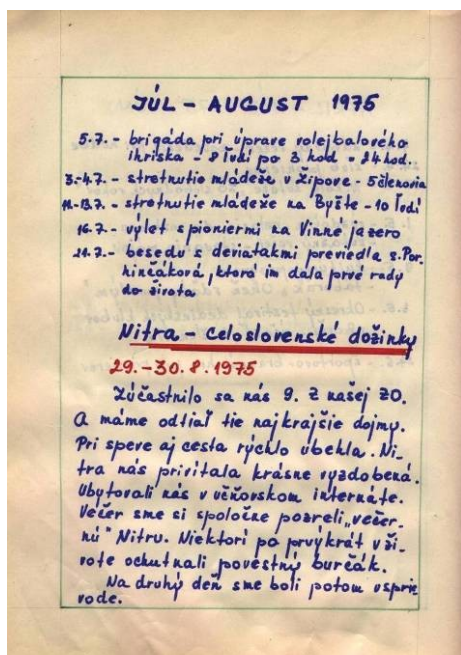 JÚL - AUGUST 1975
5.7. - brigáda pri úprave volejbalového
ihriska - 8 ľudí po 3 hod - 24 hod.
3.-4.7. - stretnutie mládeže v Žipove - 5 členovia
11.-13.7. - stretnutie mládeže na Byšte - 10 ľudí
16.7. - výlet s pioniermi na Vinné jazero
21.7. - besedu s deviatakmi previedla s. Por-
hinčáková, ktorá im dala prvé rady
do života
Nitra - celoslovenské dožinky
29.-30.8.1975
Zúčastnilo sa nás 9. Z našej ZO.
A máme odtiaľ tie najkrajšie dojmy.
Pri speve aj cesta rýchlo ubehla. Ni-
tra nás privítala krásne vyzdobená.
Ubytovali nás v učňovskom internáte.
Večer sme si spoločne pozreli „večer-
nú" Nitru. Niektorí po prvýkrát v ži-
vote ochutnali povestný burčák.
Na druhý deň sme boli potom v sprie
vode.